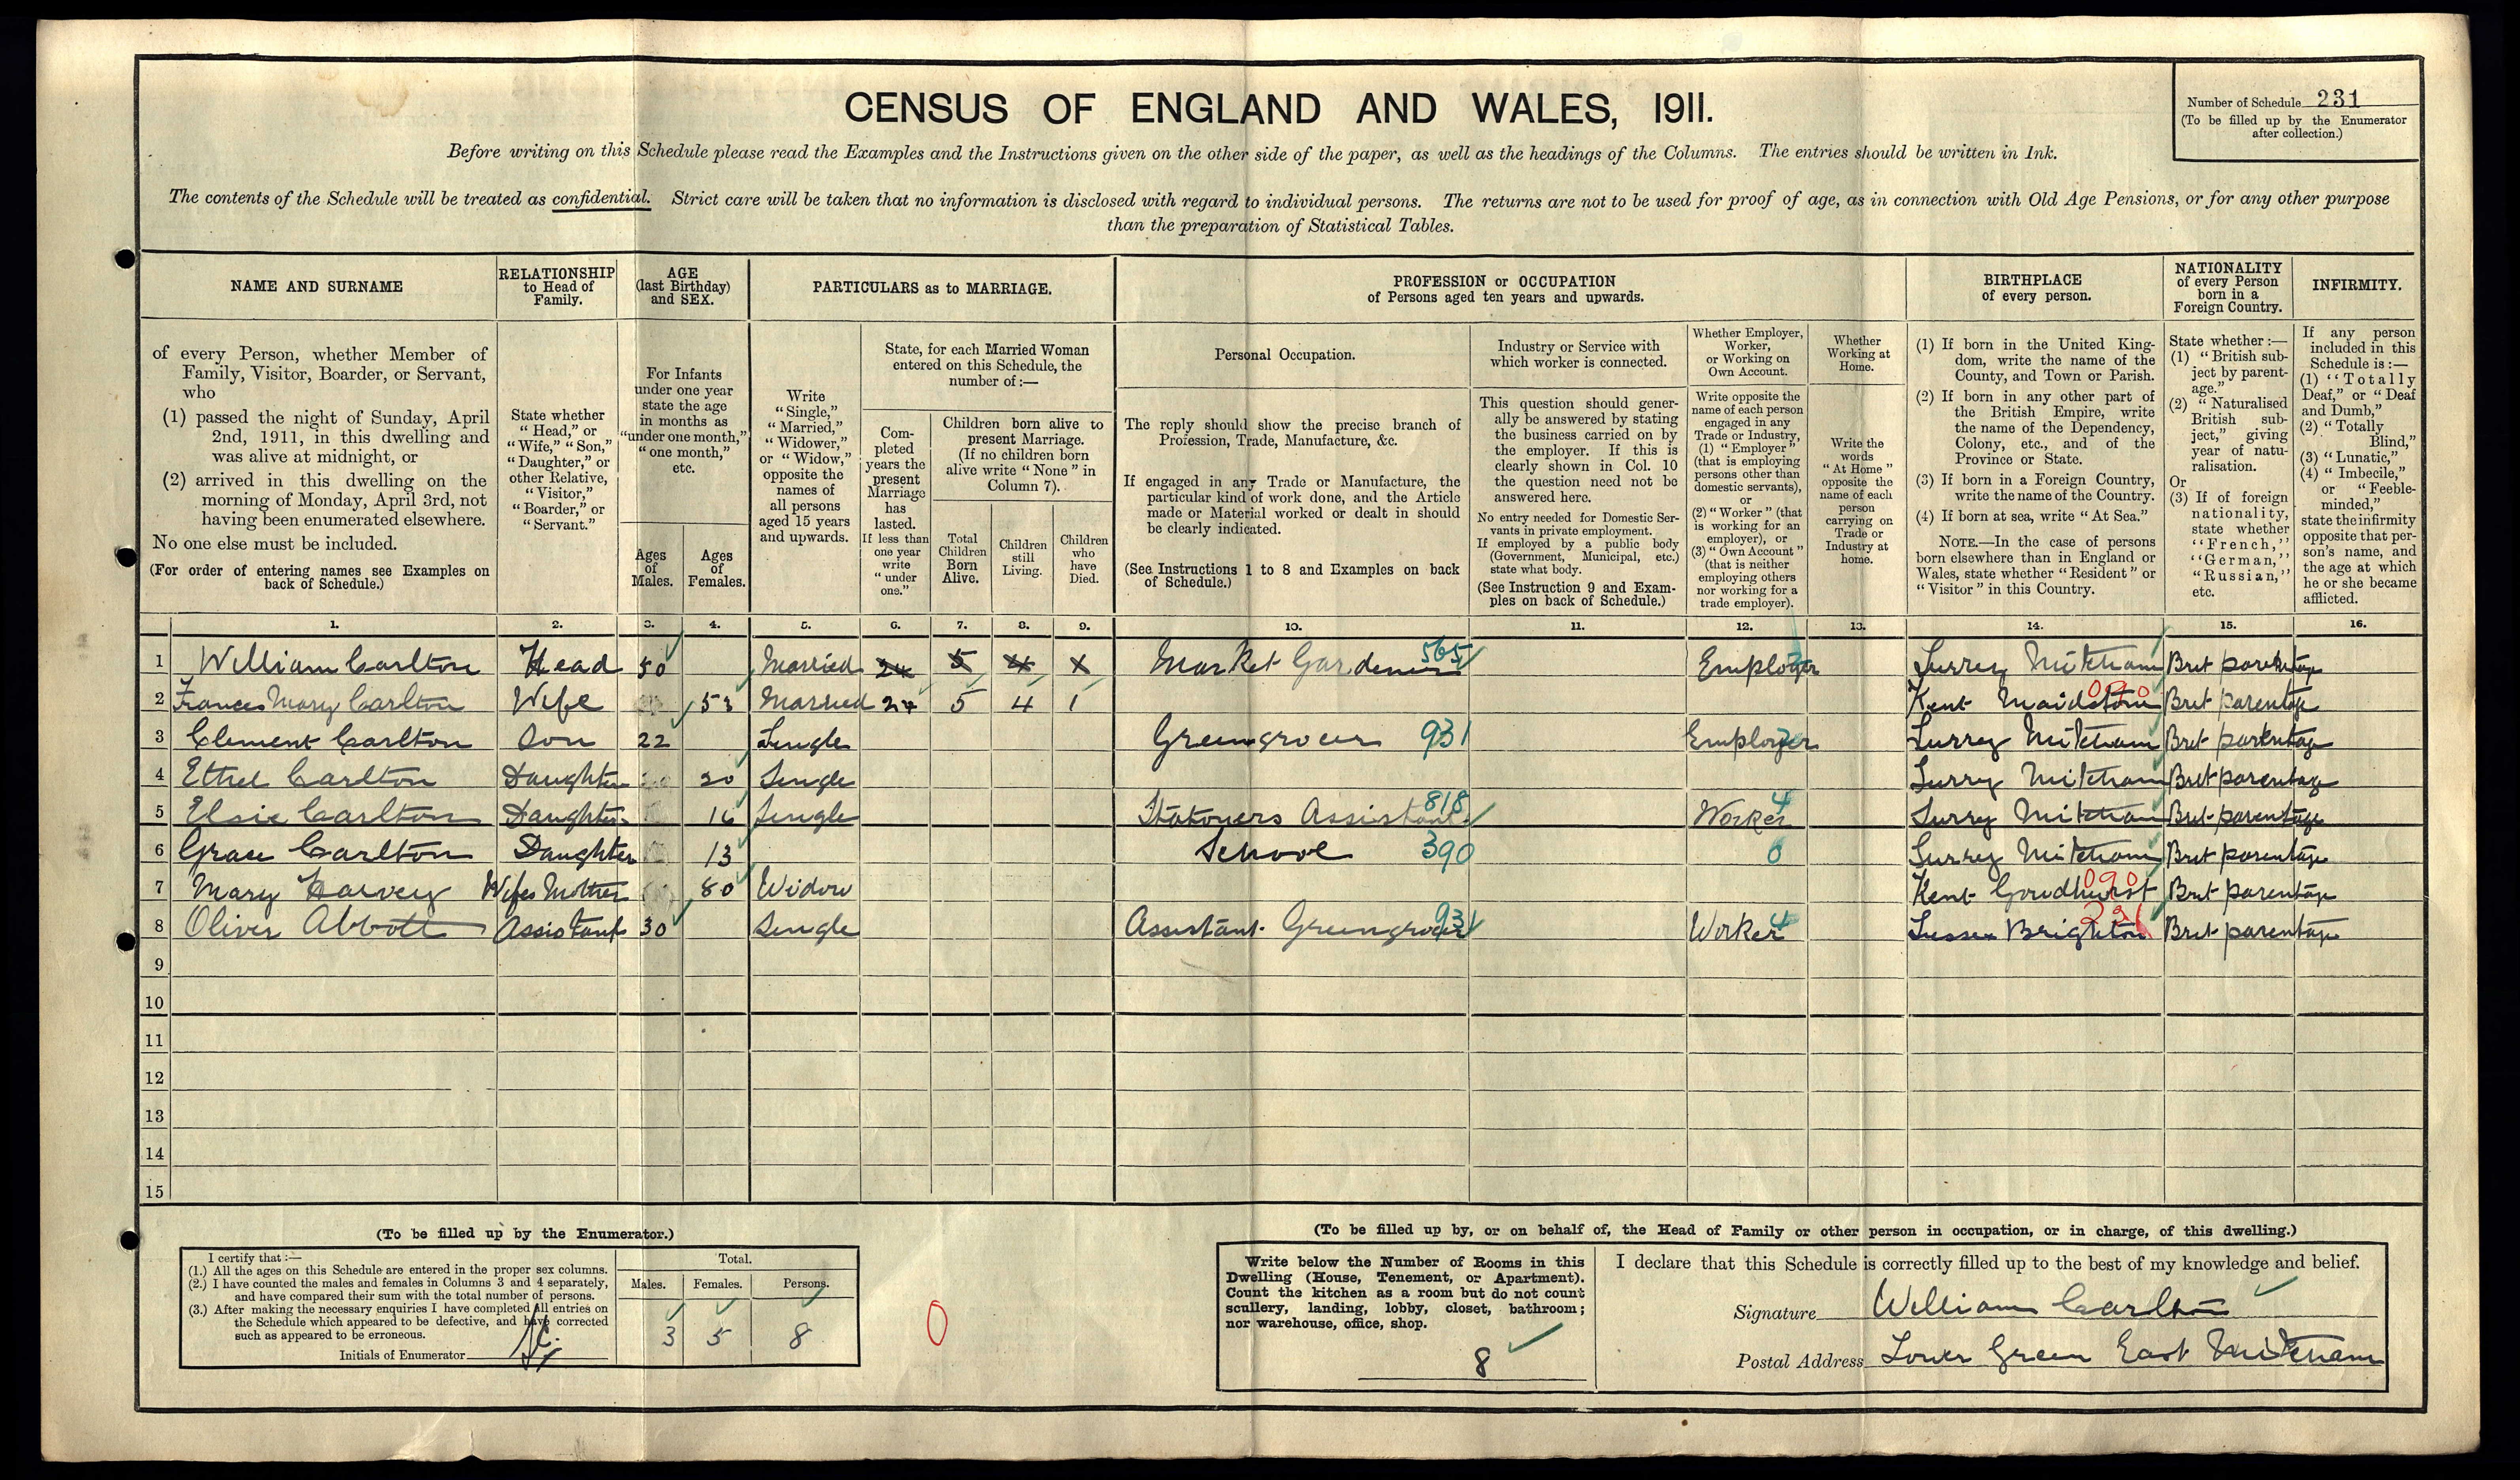 CENSUS OF ENGLAND AND WALES, 1911.
Number of Schedule 231
(To be filled up by the Enumerator
after collection.)
Before writing on this Schedule please read the Examples and the Instructions given on the other side of the paper, as well as the headings of the Columns. The entries should be written in Ink.
The contents of the Schedule will be treated as confidential. Strict care will be taken that no information is disclosed with regard to individual persons. The returns are not to be used for proof of age, as in connection with Old Age Pensions, or for any other purpose
than the preparation of Statistical Tables.
NAME AND SURNAME
RELATIONSHIP
to Head of
Family.
AGE
(last Birthday)
and SEX.
PARTICULARS as to MARRIAGE.
PROFESSION or OCCUPATION
of Persons aged ten years and upwards.
BIRTHPLACE
of every person.
NATIONALITY
of every Person
born in a
Foreign Country.
INFIRMITY.
of every Person, whether Member of
Family, Visitor, Boarder, or Servant,
who
(1) passed the night of Sunday, April
2nd, 1911, in this dwelling and
was alive at midnight, or
(2) arrived in this dwelling on the
morning of Monday, April 3rd, not
having been enumerated elsewhere.
No one else must be included.
(For order of entering names see Examples on
back of Schedule.)
State whether
"Head," or
"Wife," "Son,"
"Daughter," or
other Relative,
"Visitor,"
"Boarder," or
"Servant."
For Infants
under one year
state the age
in months as
"under one month,"
"one month,"
etc.
Ages
of
Males.
Ages
of
Females.
Write
"Single,"
"Married,"
"Widower,"
or "Widow,"
opposite the
names of
all persons
aged 15 years
and upwards.
State, for each Married Woman
entered on this Schedule, the
number of:—
Com-
pleted
years the
present
Marriage
has
lasted.
If less than
one year
write
"under
one."
Children born alive to
present Marriage.
(If no children born
alive write "None" in
Column 7).
Total
Children
Born
Alive.
Children
still
Living.
Children
who
have
Died.
Personal Occupation.
The reply should show the precise branch of
Profession, Trade, Manufacture, &c.
If engaged in any Trade or Manufacture, the
particular kind of work done, and the Article
made or Material worked or dealt in should
be clearly indicated.
(See Instructions 1 to 8 and Examples on back
of Schedule.)
Industry or Service with
which worker is connected.
This question should gener-
ally be answered by stating
the business carried on by
the employer. If this is
clearly shown in Col. 10
the question need not be
answered here.
No entry needed for Domestic Ser-
vants in private employment.
If employed by a public body
(Government, Municipal, etc.)
state what body.
(See Instruction 9 and Exam-
ples on back of Schedule.)
Whether Employer,
Worker,
or Working on
Own Account.
Write opposite the
name of each person
engaged in any
Trade or Industry,
(1) "Employer"
(that is employing
persons other than
domestic servants),
or
(2) "Worker" (that
is working for an
employer), or
(3) "Own Account"
(that is neither
employing others
nor working for a
trade employer).
Whether
Working at
Home.
Write the
words
"At Home"
opposite the
name of each
person
carrying on
Trade or
Industry at
home.
(1) If born in the United King-
dom, write the name of the
County, and Town or Parish.
(2) If born in any other part of
the British Empire, write
the name of the Dependency,
Colony, etc., and of the
Province or State.
(3) If born in a Foreign Country,
write the name of the Country.
(4) If born at sea, write "At Sea."
NOTE.—In the case of persons
born elsewhere than in England or
Wales, state whether "Resident" or
"Visitor" in this Country.
State whether:—
(1) "British sub-
ject by parent-
age."
(2) "Naturalised
British sub-
ject," giving
year of natu-
ralisation.
Or
(3) If of foreign
nationality,
state whether
"French,"
"German,"
"Russian,"
etc.
If any person
included in this
Schedule is:—
(1) "Totally
Deaf," or "Deaf
and Dumb,"
(2) "Totally
Blind,"
(3) "Lunatic,"
(4) "Imbecile,"
or "Feeble-
minded,"
state the infirmity
opposite that per-
son's name, and
the age at which
he or she became
afflicted.
1. 2. 3. 4. 5. 6. 7. 8. 9. 10. 11. 12. 13. 14. 15. 16.
1 William Carlton Head 50 Married 24 5 4 1 Market Gardener 565 Employer Surrey Mitcham Brit parentage
2 Frances Mary Carlton Wife 53 Married 24 5 4 1 Kent Maidstone 090 Brit parentage
3 Clement Carlton Son 22 Single Greengrocer 931 Employer Surrey Mitcham Brit parentage
4 Ethel Carlton Daughter 20 Single Surrey Mitcham Brit parentage
5 Elsie Carlton Daughter 16 Single Stationers Assistant 818 Worker 4 Surrey Mitcham Brit parentage
6 Grace Carlton Daughter 13 School 390 0 Surrey Mitcham Brit parentage
7 Mary Harvey Wifes Mother 80 Widow Kent Goudhurst 090 Brit parentage
8 Oliver Abbott Assistant 30 Single Assistant Greengrocer 931 Worker 4 Sussex Brighton Brit parentage
9
10
11
12
13
14
15
(To be filled up by the Enumerator.)
I certify that:—
(1.) All the ages on this Schedule are entered in the proper sex columns.
(2.) I have counted the males and females in Columns 3 and 4 separately,
and have compared their sum with the total number of persons.
(3.) After making the necessary enquiries I have completed all entries on
the Schedule which appeared to be defective, and have corrected
such as appeared to be erroneous.
Initials of Enumerator
Total.
Males. Females. Persons.
3 5 8
0
(To be filled up by, or on behalf of, the Head of Family or other person in occupation, or in charge, of this dwelling.)
Write below the Number of Rooms in this
Dwelling (House, Tenement, or Apartment).
Count the kitchen as a room but do not count
scullery, landing, lobby, closet, bathroom;
nor warehouse, office, shop.
8
I declare that this Schedule is correctly filled up to the best of my knowledge and belief.
Signature William Carlton
Postal Address Lower Green East Mitcham